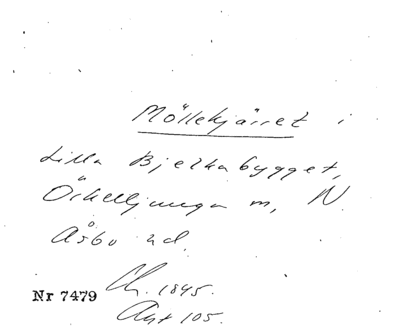 Möllekjärret i
Lilla Bjelkabygget,
Örkelljunga m, N.
Åsbo hd.
Ch. 1845.
Akt 105.
Nr 7479